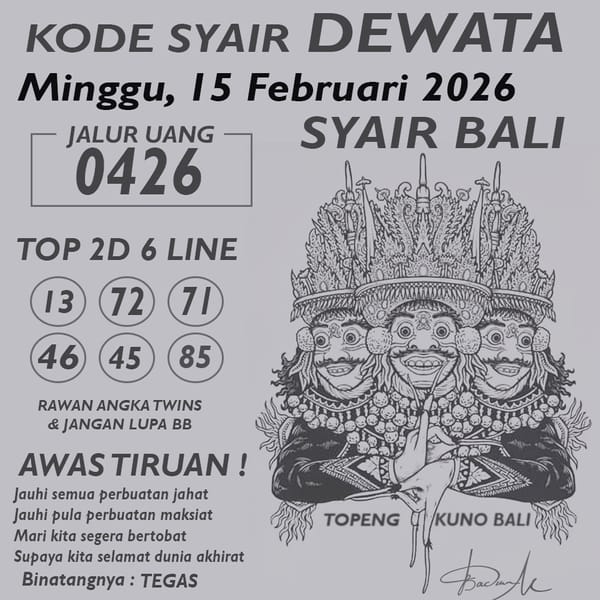 KODE SYAIR DEWATA
Minggu, 15 Februari 2026
SYAIR BALI
JALUR UANG
0426
TOP 2D 6 LINE
13 72 71
46 45 85
RAWAN ANGKA TWINS
& JANGAN LUPA BB
AWAS TIRUAN !
Jauhi semua perbuatan jahat
Jauhi pula perbuatan maksiat
Mari kita segera bertobat
Supaya kita selamat dunia akhirat
Binatangnya : TEGAS
TOPENG KUNO BALI